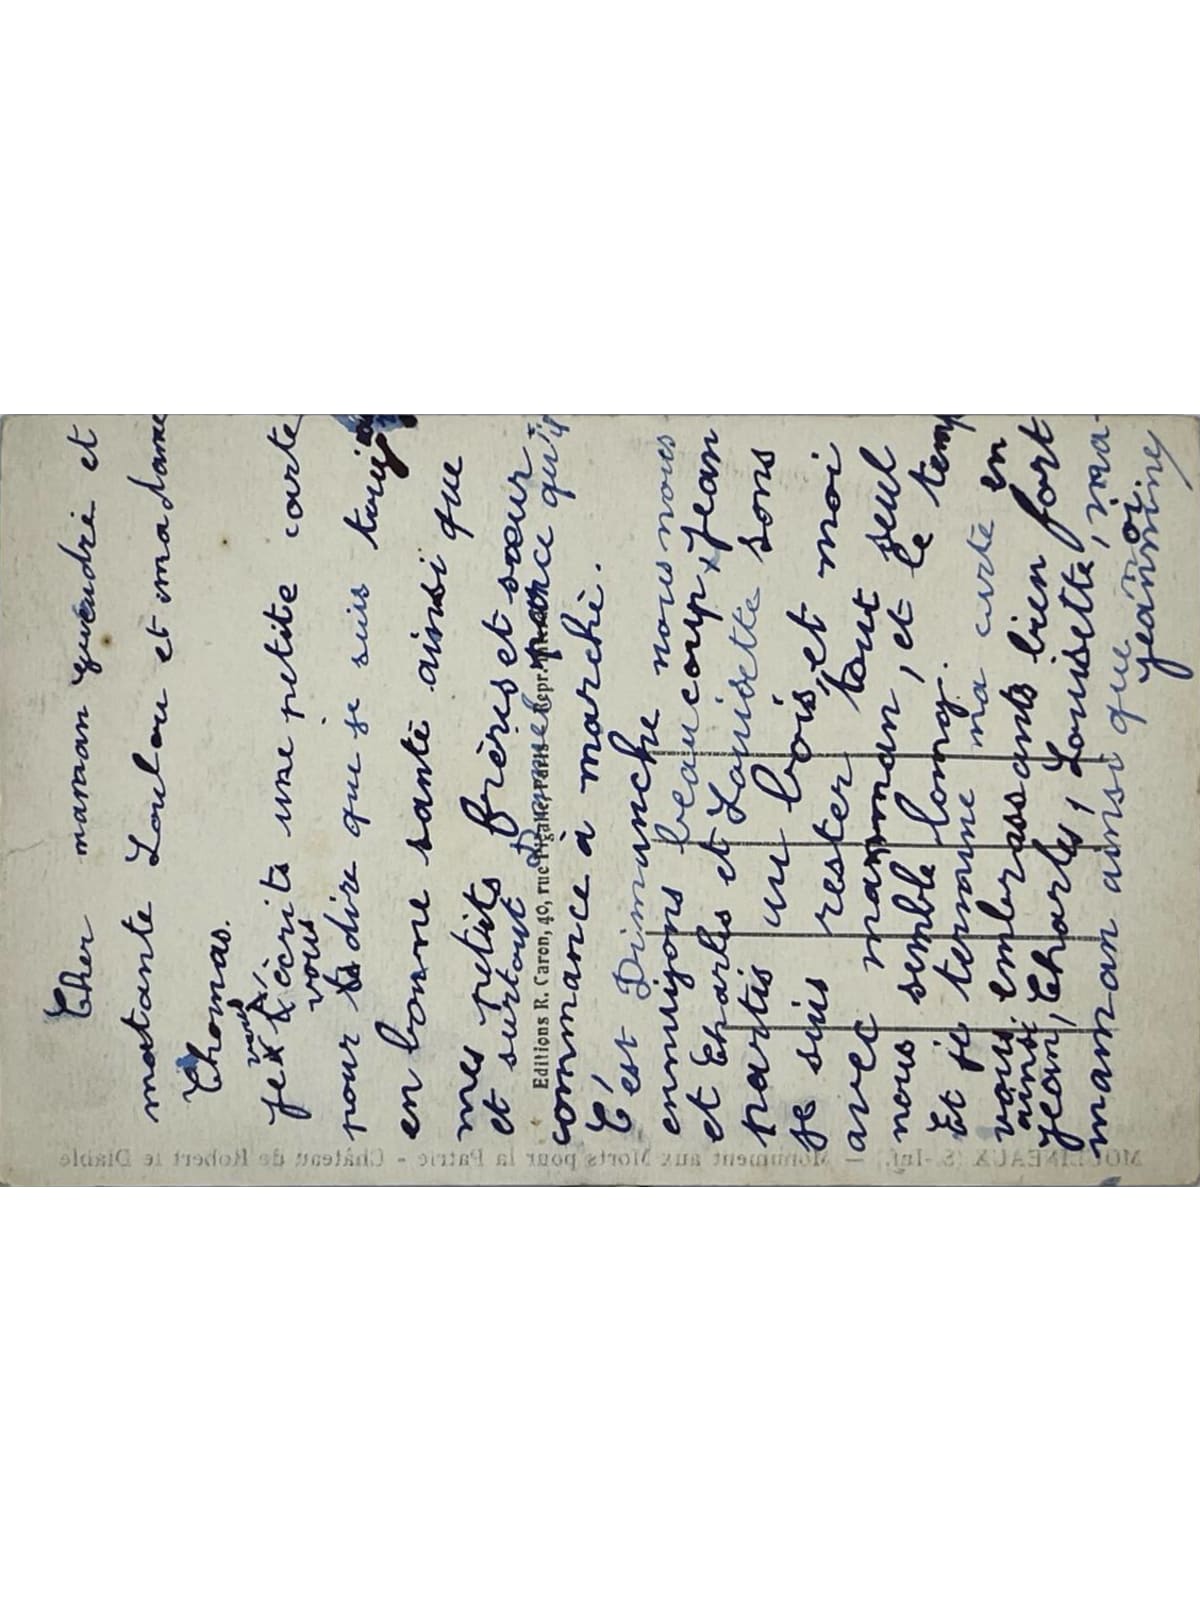 Cher maman Gueudré et
matante Loulou et madame
Thomas.
vous
je t'écrits une petite carte
vous
pour te dire que je suis touj
en bonne santé ainsi que
mes petits frères et sœur
et surtout parce qu'il
commance à marché.
C'est Dimanche nous nous
ennuyons beaucoup x Jean
et Charles et Louisette sons
partis un bois, et moi
je suis rester tout seul
avec manman, et le temp
nous semble long.
Et je termine ma carte en
vous embrassant bien fort
ainsi
Jean, Charles, Louisette, ma-
manman ainsi que moi
Jeannine
Editions R. Caron, 40, rue Pigalle, Paris
MOULINEAUX (S.-Inf.) — Monument aux Morts pour la Patrie - Château de Robert le Diable